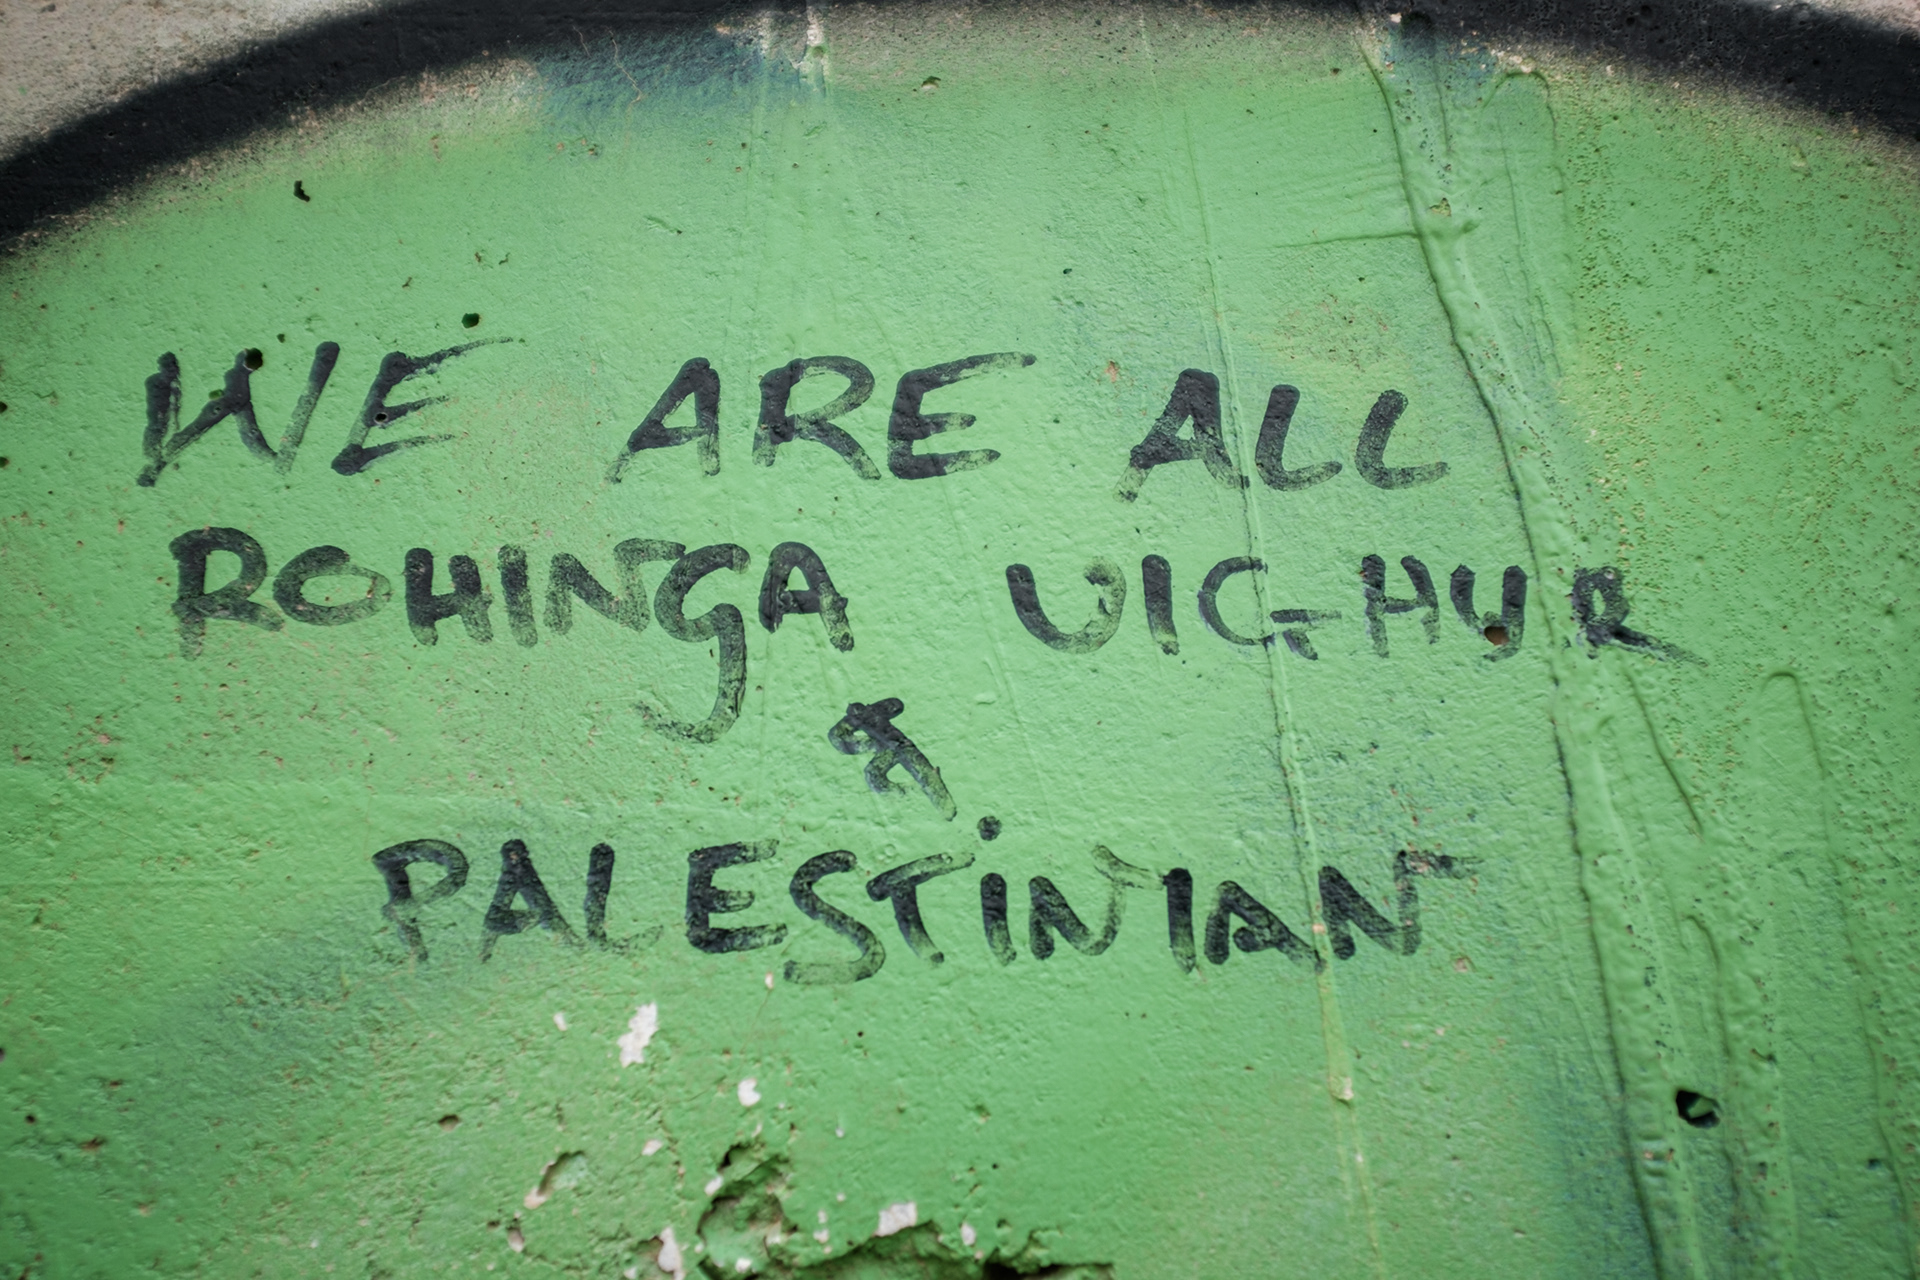 WE ARE ALL
ROHINGA UIGHUR
&
PALESTINIAN